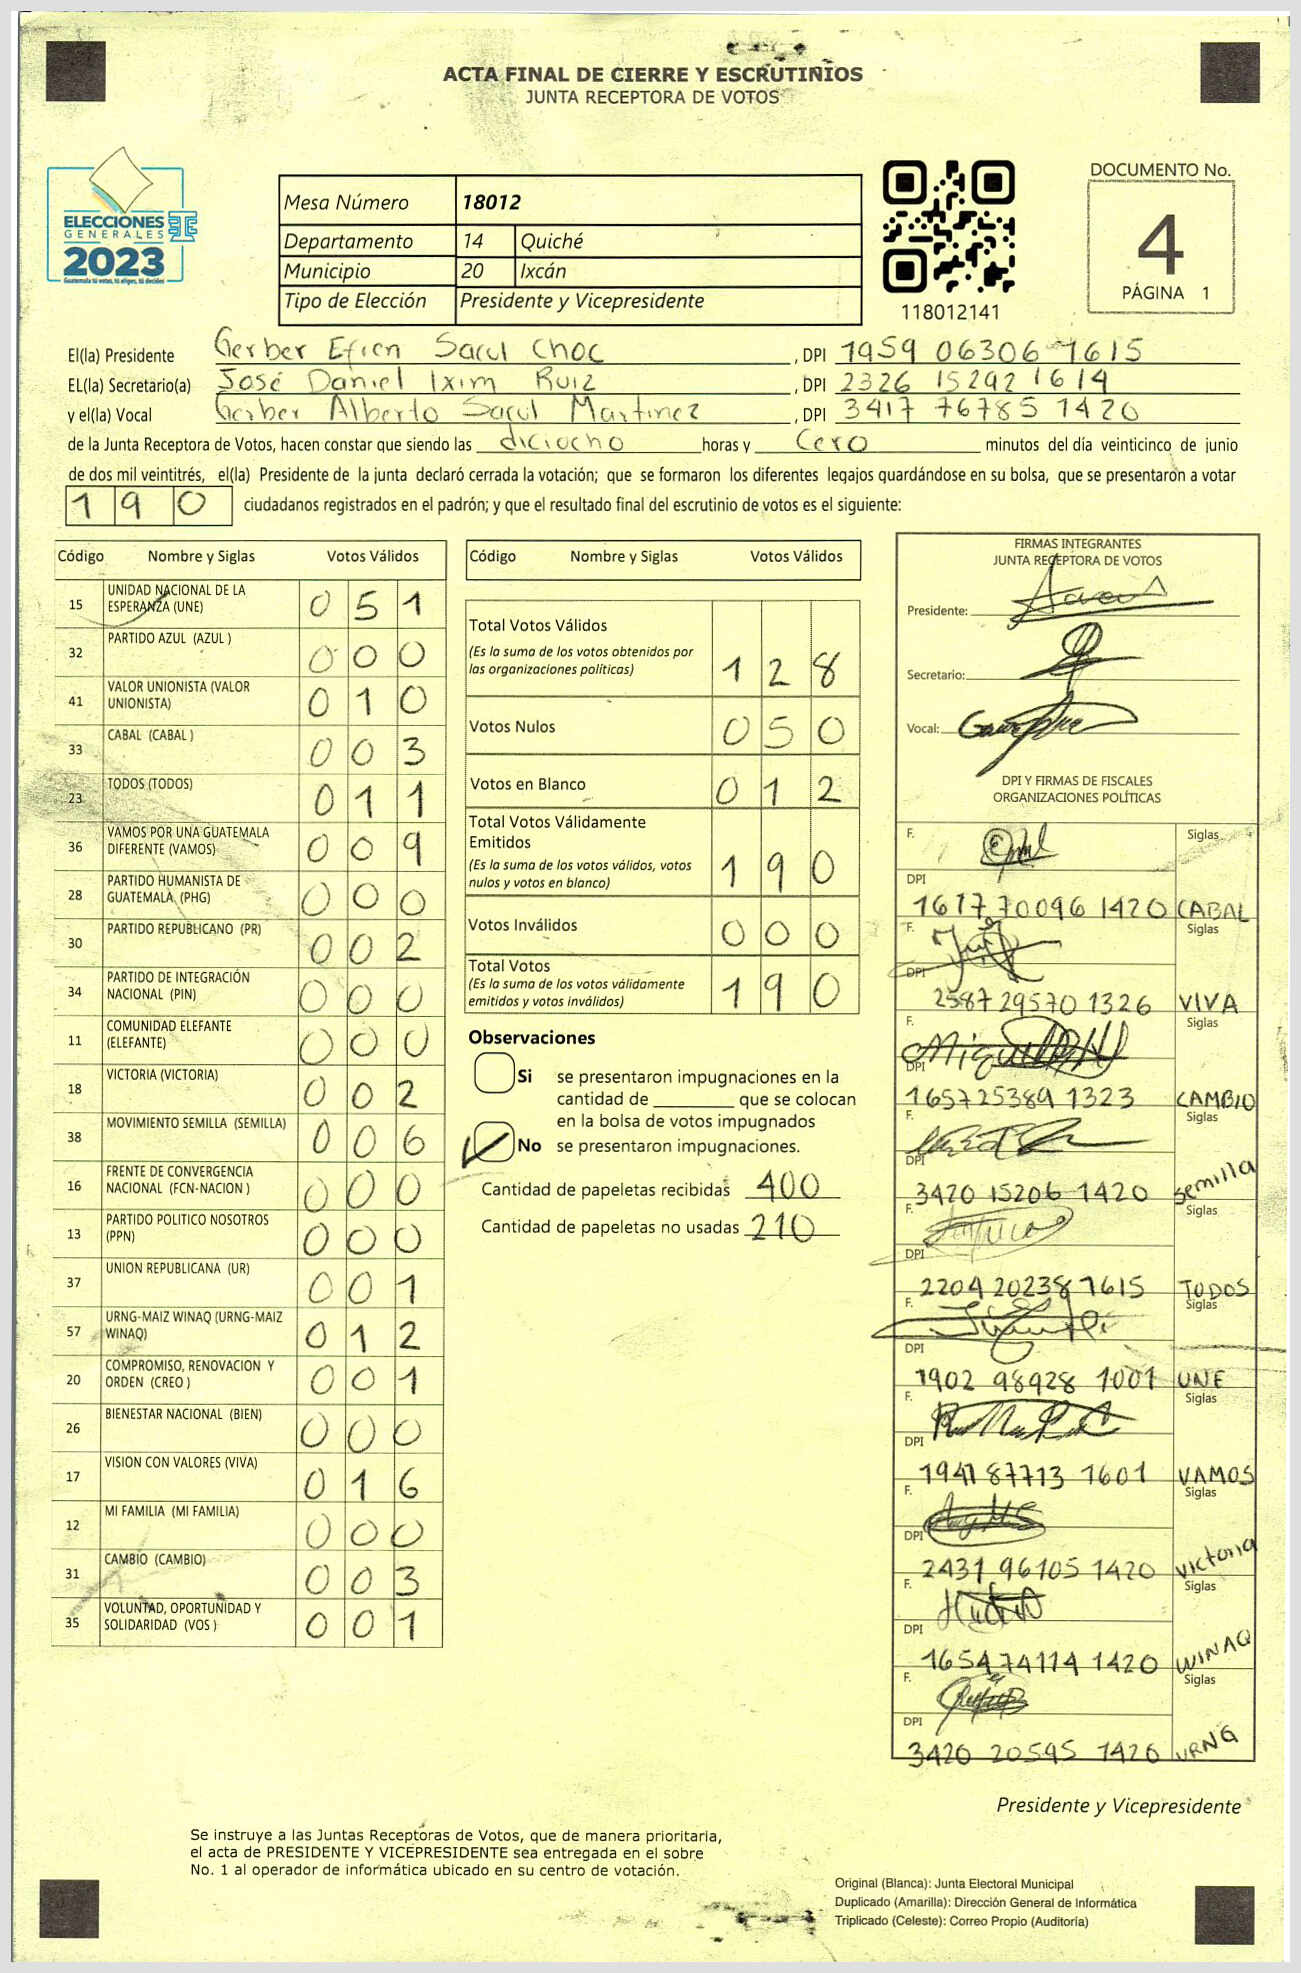 ACTA FINAL DE CIERRE Y ESCRUTINIOS
JUNTA RECEPTORA DE VOTOS
ELECCIONES
GENERALES
2023
Guatemala tú votas, tú eliges, tú decides
Mesa Número 18012
Departamento 14 Quiché
Municipio 20 Ixcán
Tipo de Elección Presidente y Vicepresidente
118012141
DOCUMENTO No.
4
PÁGINA 1
El(la) Presidente Gerber Efren Sacul Choc, DPI 1959 06306 1615
EL(la) Secretario(a) José Daniel Ixim Ruiz, DPI 2326 15292 1614
y el(la) Vocal Gerber Alberto Sacul Martinez, DPI 3417 76785 1420
de la Junta Receptora de Votos, hacen constar que siendo las diciocho horas y Cero minutos del día veinticinco de junio
de dos mil veintitrés, el(la) Presidente de la junta declaró cerrada la votación; que se formaron los diferentes legajos guardándose en su bolsa, que se presentaron a votar
190 ciudadanos registrados en el padrón; y que el resultado final del escrutinio de votos es el siguiente:
Código Nombre y Siglas Votos Válidos
15 UNIDAD NACIONAL DE LA ESPERANZA (UNE) 051
32 PARTIDO AZUL (AZUL ) 000
41 VALOR UNIONISTA (VALOR UNIONISTA) 010
33 CABAL (CABAL ) 003
23 TODOS (TODOS) 011
36 VAMOS POR UNA GUATEMALA DIFERENTE (VAMOS) 009
28 PARTIDO HUMANISTA DE GUATEMALA (PHG) 000
30 PARTIDO REPUBLICANO (PR) 002
34 PARTIDO DE INTEGRACIÓN NACIONAL (PIN) 000
11 COMUNIDAD ELEFANTE (ELEFANTE) 000
18 VICTORIA (VICTORIA) 002
38 MOVIMIENTO SEMILLA (SEMILLA) 006
16 FRENTE DE CONVERGENCIA NACIONAL (FCN-NACION ) 000
13 PARTIDO POLITICO NOSOTROS (PPN) 000
37 UNION REPUBLICANA (UR) 001
57 URNG-MAIZ WINAQ (URNG-MAIZ WINAQ) 012
20 COMPROMISO, RENOVACION Y ORDEN (CREO ) 001
26 BIENESTAR NACIONAL (BIEN) 000
17 VISION CON VALORES (VIVA) 016
12 MI FAMILIA (MI FAMILIA) 000
31 CAMBIO (CAMBIO) 003
35 VOLUNTAD, OPORTUNIDAD Y SOLIDARIDAD (VOS ) 001
Código Nombre y Siglas Votos Válidos
Total Votos Válidos 128
(Es la suma de los votos obtenidos por
las organizaciones políticas)
Votos Nulos 050
Votos en Blanco 012
Total Votos Válidamente
Emitidos 190
(Es la suma de los votos válidos, votos
nulos y votos en blanco)
Votos Inválidos 000
Total Votos 190
(Es la suma de los votos válidamente
emitidos y votos inválidos)
Observaciones
Si se presentaron impugnaciones en la
cantidad de ________ que se colocan
en la bolsa de votos impugnados
No se presentaron impugnaciones.
Cantidad de papeletas recibidas 400
Cantidad de papeletas no usadas 210
FIRMAS INTEGRANTES
JUNTA RECEPTORA DE VOTOS
Presidente:
Secretario:
Vocal:
DPI Y FIRMAS DE FISCALES
ORGANIZACIONES POLÍTICAS
F. Siglas
DPI 1617 70096 1420 CABAL
F. Siglas
DPI 2587 29570 1326 VIVA
F. Siglas
DPI 1657 25389 1323 CAMBIO
F. Siglas
DPI 3420 15206 1420 semilla
F. Siglas
DPI 2204 20238 1615 TODOS
F. Siglas
DPI 1902 98928 1001 UNE
F. Siglas
DPI 1941 87713 1601 VAMOS
F. Siglas
DPI 2431 96105 1420 victoria
F. Siglas
DPI 1654 74114 1420 WINAQ
F. Siglas
DPI 3420 20595 1420 URNG
Presidente y Vicepresidente
Se instruye a las Juntas Receptoras de Votos, que de manera prioritaria,
el acta de PRESIDENTE Y VICEPRESIDENTE sea entregada en el sobre
No. 1 al operador de informática ubicado en su centro de votación.
Original (Blanca): Junta Electoral Municipal
Duplicado (Amarilla): Dirección General de Informática
Triplicado (Celeste): Correo Propio (Auditoría)